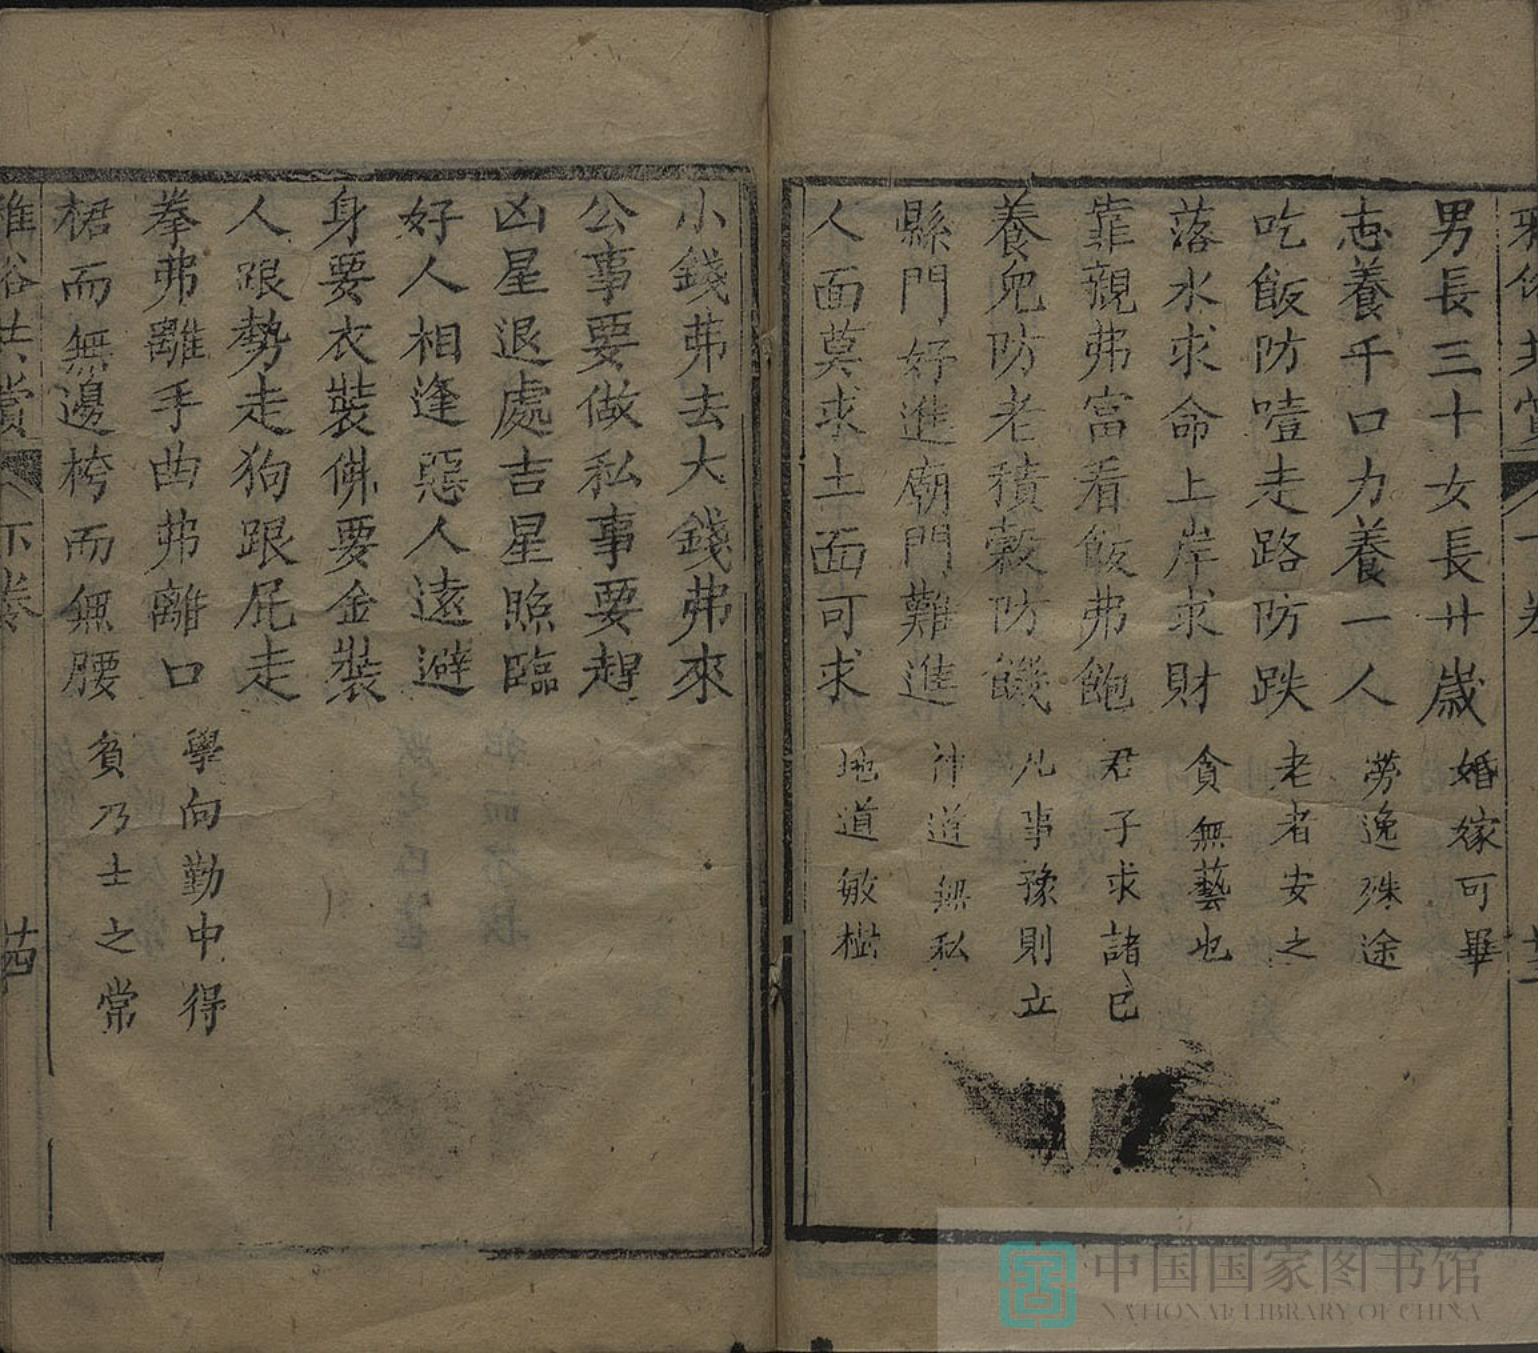 男長三十女長廿歲 婚嫁可畢
志養千口力養一人 勞逸殊途
吃飯防噎走路防跌 老者安之
落水求命上岸求財 貪無藝也
靠親弗富看飯弗飽 君子求諸己
養兒防老積穀防饑 凡事豫則立
縣門好進廟門難進 神道無私
人面莫求土面可求 地道敏樹
小錢弗去大錢弗來
公事要做私事要趕
凶星退處吉星照臨
好人相逢惡人遠避
身要衣裝佛要金裝
人跟勢走狗跟屁走
拳弗離手曲弗離口 學向勤中得
裙而無邊袴而無腰 貧乃士之常
雅俗共賞 下卷
中国国家图书馆
NATIONAL LIBRARY OF CHINA